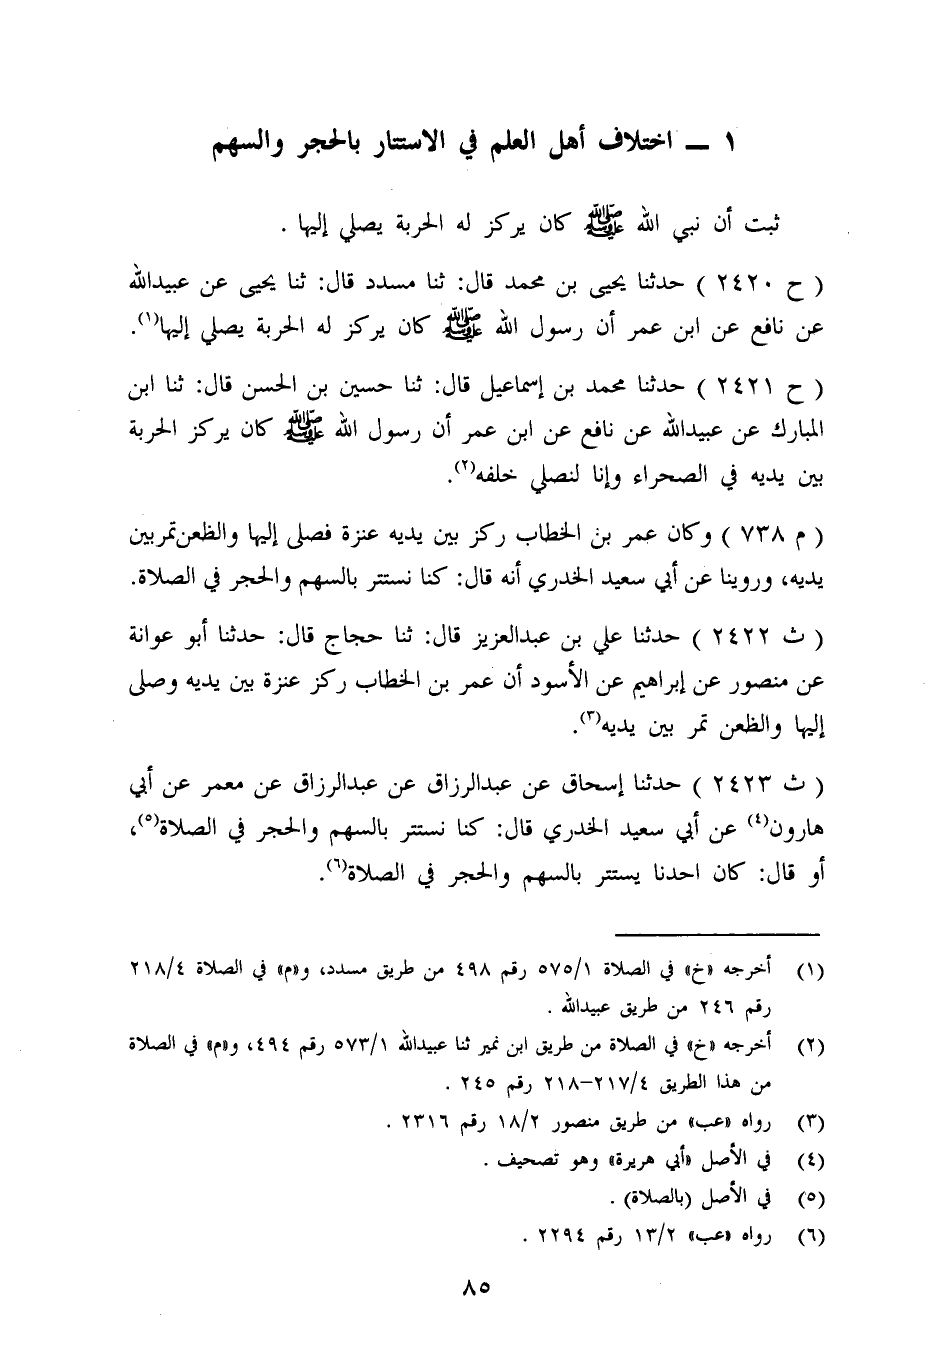 ١ ــ اختلاف أهل العلم في الاستتار بالحجر والسهم
ثبت أن نبي الله ﷺ كان يركز له الحربة يصلي إليها .
( ح ٢٤٢٠ ) حدثنا يحيى بن محمد قال: ثنا مسدد قال: ثنا يحيى عن عبيدالله
عن نافع عن ابن عمر أن رسول الله ﷺ كان يركز له الحربة يصلي إليها(١).
( ح ٢٤٢١ ) حدثنا محمد بن إسماعيل قال: ثنا حسين بن الحسن قال: ثنا ابن
المبارك عن عبيدالله عن نافع عن ابن عمر أن رسول الله ﷺ كان يركز الحربة
بين يديه في الصحراء وإنا لنصلي خلفه(٢).
( م ٧٣٨ ) وكان عمر بن الخطاب ركز بين يديه عنزة فصلى إليها والظعن تمر بين
يديه، وروينا عن أبي سعيد الخدري أنه قال: كنا نستتر بالسهم والحجر في الصلاة.
( ث ٢٤٢٢ ) حدثنا علي بن عبدالعزيز قال: ثنا حجاج قال: حدثنا أبو عوانة
عن منصور عن إبراهيم عن الأسود أن عمر بن الخطاب ركز عنزة بين يديه وصلى
إليها والظعن تمر بين يديه(٣).
( ث ٢٤٢٣ ) حدثنا إسحاق عن عبدالرزاق عن عبدالرزاق عن معمر عن أبي
هارون(٤) عن أبي سعيد الخدري قال: كنا نستتر بالسهم والحجر في الصلاة(٥)،
أو قال: كان احدنا يستتر بالسهم والحجر في الصلاة(٦).
(١) أخرجه «خ» في الصلاة ٥٧٥/١ رقم ٤٩٨ من طريق مسدد، و«م» في الصلاة ٢١٨/٤
رقم ٢٤٦ من طريق عبيدالله .
(٢) أخرجه «خ» في الصلاة من طريق ابن نمير ثنا عبيدالله ٥٧٣/١ رقم ٤٩٤، و«م» في الصلاة
من هذا الطريق ٢١٧/٤-٢١٨ رقم ٢٤٥ .
(٣) رواه «عب» من طريق منصور ١٨/٢ رقم ٢٣١٦ .
(٤) في الأصل «أبي هريرة» وهو تصحيف .
(٥) في الأصل (بالصلاة) .
(٦) رواه «عب» ١٣/٢ رقم ٢٢٩٤ .
٨٥